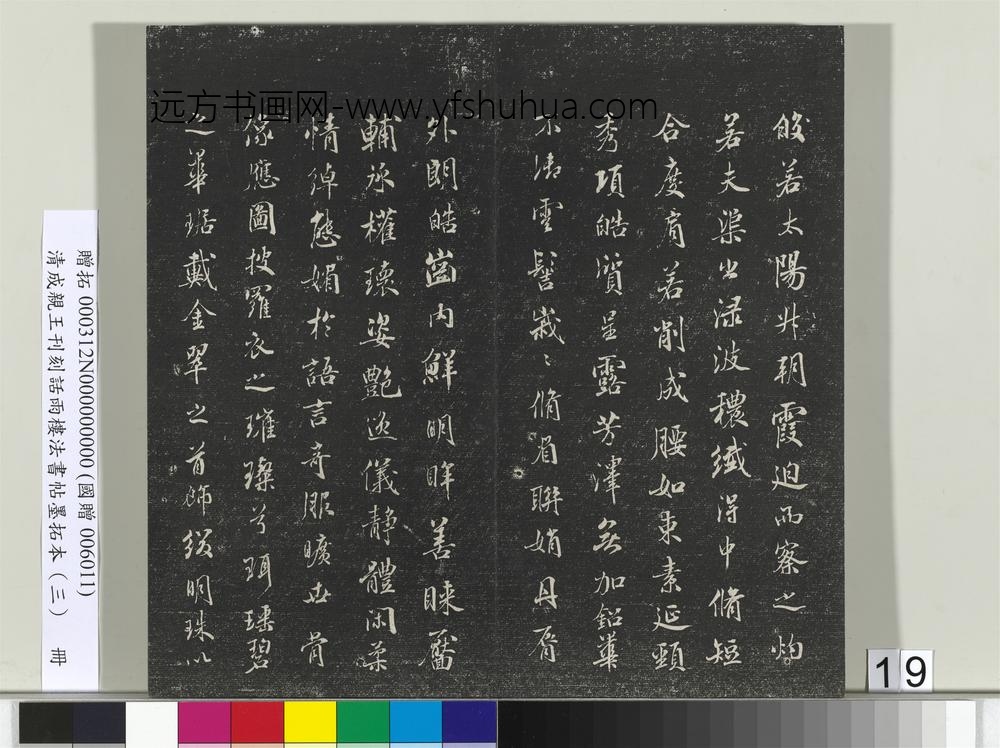 远方书画网-www.yfshuhua.com
皎若太陽升朝霞迫而察之灼
若夫渠出渌波穠纖得中脩短
合度肩若削成腰如束素延頸
秀項皓質呈露芳澤無加鉛華
不御雲髻峩〻脩眉聯娟丹脣
外朗皓齒内鮮明眸善睞靨
輔承權瓌姿艷逸儀静體閑柔
情綽態媚於語言奇服曠世骨
像應圖披羅衣之璀璨兮珥瑤碧
之華琚戴金翠之首飾綴明珠以
贈拓 000312N000000000 (國贈 006011)
清成親王刊刻話雨樓法書帖墨拓本（三） 冊
19